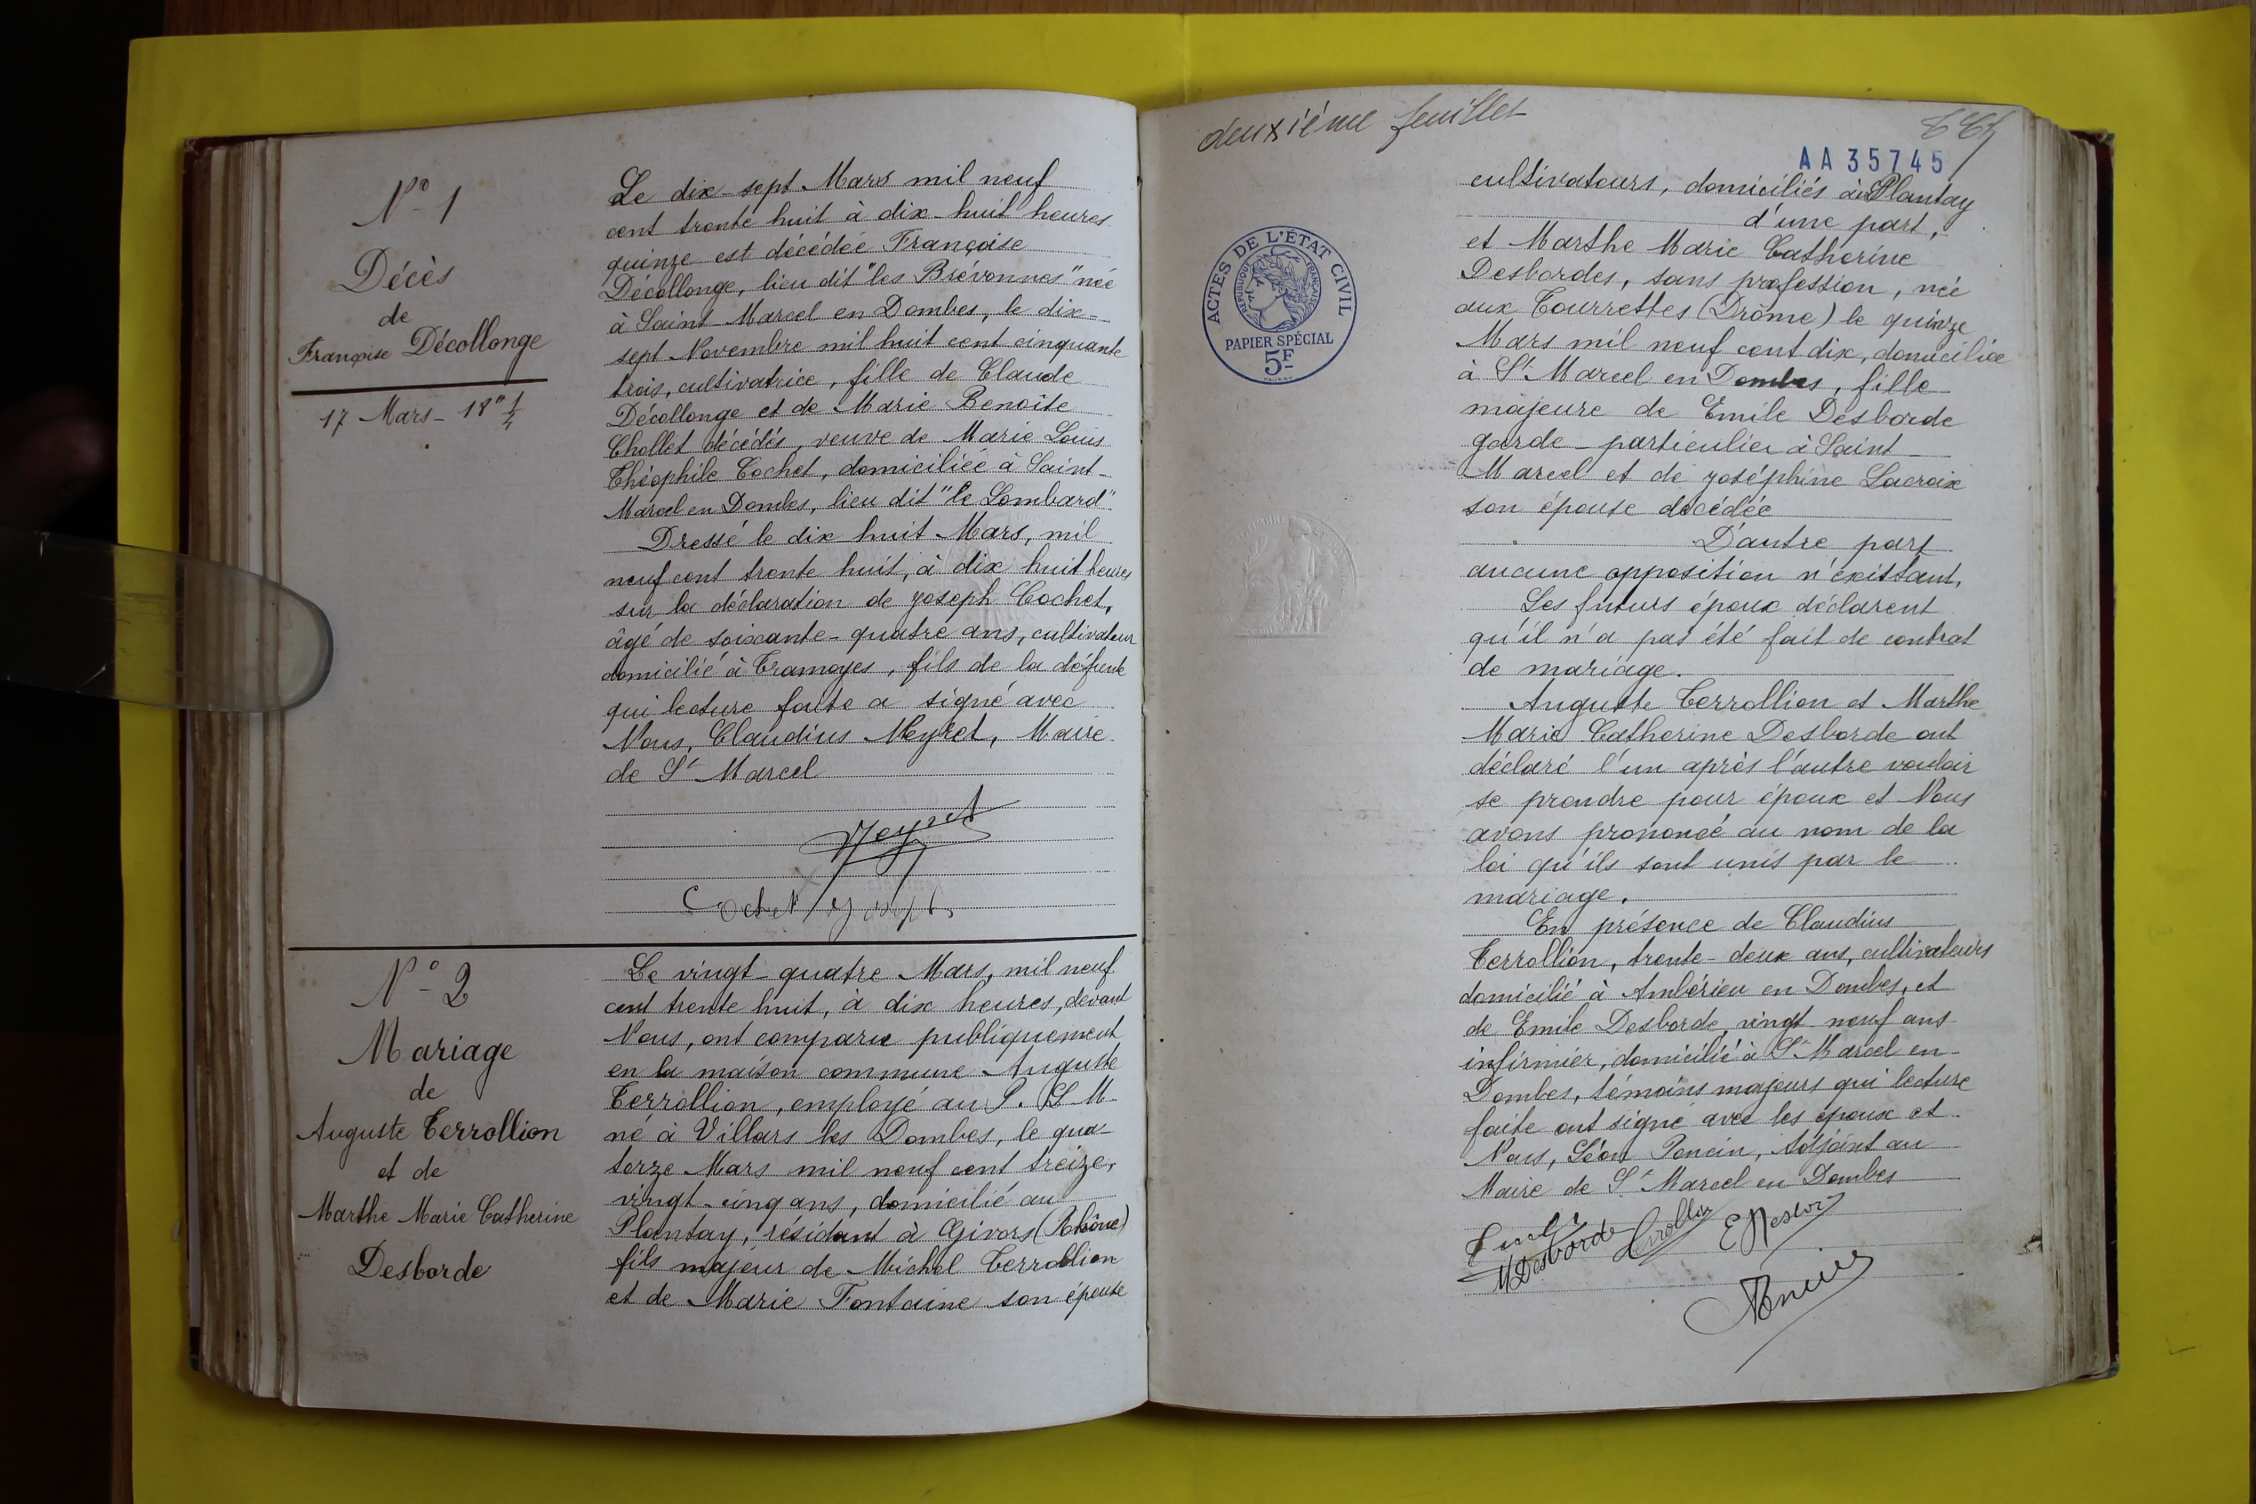 N° 1
Décès
de
Françoise Décollonge
17 Mars - 18h 1/4
Le dix-sept Mars mil neuf
cent trente huit à dix-huit heures
quinze est décédée Françoise
Décollonge, lieu dit "les Brévonnes" née
à Saint Marcel en Dombes, le dix-
sept Novembre mil huit cent cinquante
trois, cultivatrice, fille de Claude
Décollonge et de Marie Benoîte
Chollet décédés, veuve de Marie Louis
Théophile Cochet, domiciliée à Saint-
Marcel en Dombes, lieu dit "le Lombard".
Dressé le dix huit Mars, mil
neuf cent trente huit, à dix huit heures
sur la déclaration de Joseph Cochet,
âgé de soixante-quatre ans, cultivateur
domicilié à Tramoyes, fils de la défunte
qui lecture faite a signé avec
Nous, Claudius Meyret, Maire
de St Marcel
Meyret
Cochet Joseph
N° 2
Mariage
de
Auguste Terrollion
et de
Marthe Marie Catherine
Desborde
Le vingt-quatre Mars, mil neuf
cent trente huit, à dix heures, devant
Nous, ont comparu publiquement
en la maison commune Auguste
Terrollion, employé au P. L. M.
né à Villars les Dombes, le qua-
torze Mars mil neuf cent treize,
vingt-cinq ans, domicilié au
Plantay, résidant à Givors (Rhône)
fils majeur de Michel Terrollion
et de Marie Fontaine son épouse
deuxième feuillet
AA 35745
ACTES DE L'ÉTAT CIVIL
RÉPUBLIQUE FRANÇAISE
PAPIER SPÉCIAL
5F
cultivateurs, domiciliés au Plantay
d'une part,
et Marthe Marie Catherine
Desbordes, sans profession, née
aux Tourrettes (Drôme) le quinze
Mars mil neuf cent dix, domiciliée
à St Marcel en Dombes, fille
majeure de Emile Desborde
garde-particulier à Saint
Marcel et de Joséphine Lacroix
son épouse décédée
D'autre part
aucune opposition n'existant,
Les futurs époux déclarent
qu'il n'a pas été fait de contrat
de mariage.
Auguste Terrollion et Marthe
Marie Catherine Desborde ont
déclaré l'un après l'autre vouloir
se prendre pour époux et Nous
avons prononcé au nom de la
loi qu'ils sont unis par le
mariage.
En présence de Claudius
Terrollion, trente-deux ans, cultivateurs
domicilié à Ambérieu en Dombes, et
de Emile Desborde, vingt neuf ans
infirmier, domicilié à St Marcel en-
Dombes, témoins majeurs qui lecture
faite ont signé avec les époux et
Nous, Léon Poncin, Adjoint au
Maire de St Marcel en Dombes
M Desborde Terrollion